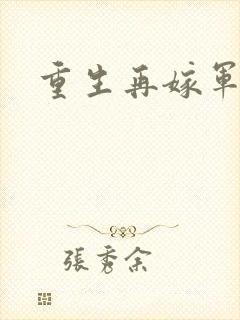 重生再嫁軍
張秀余